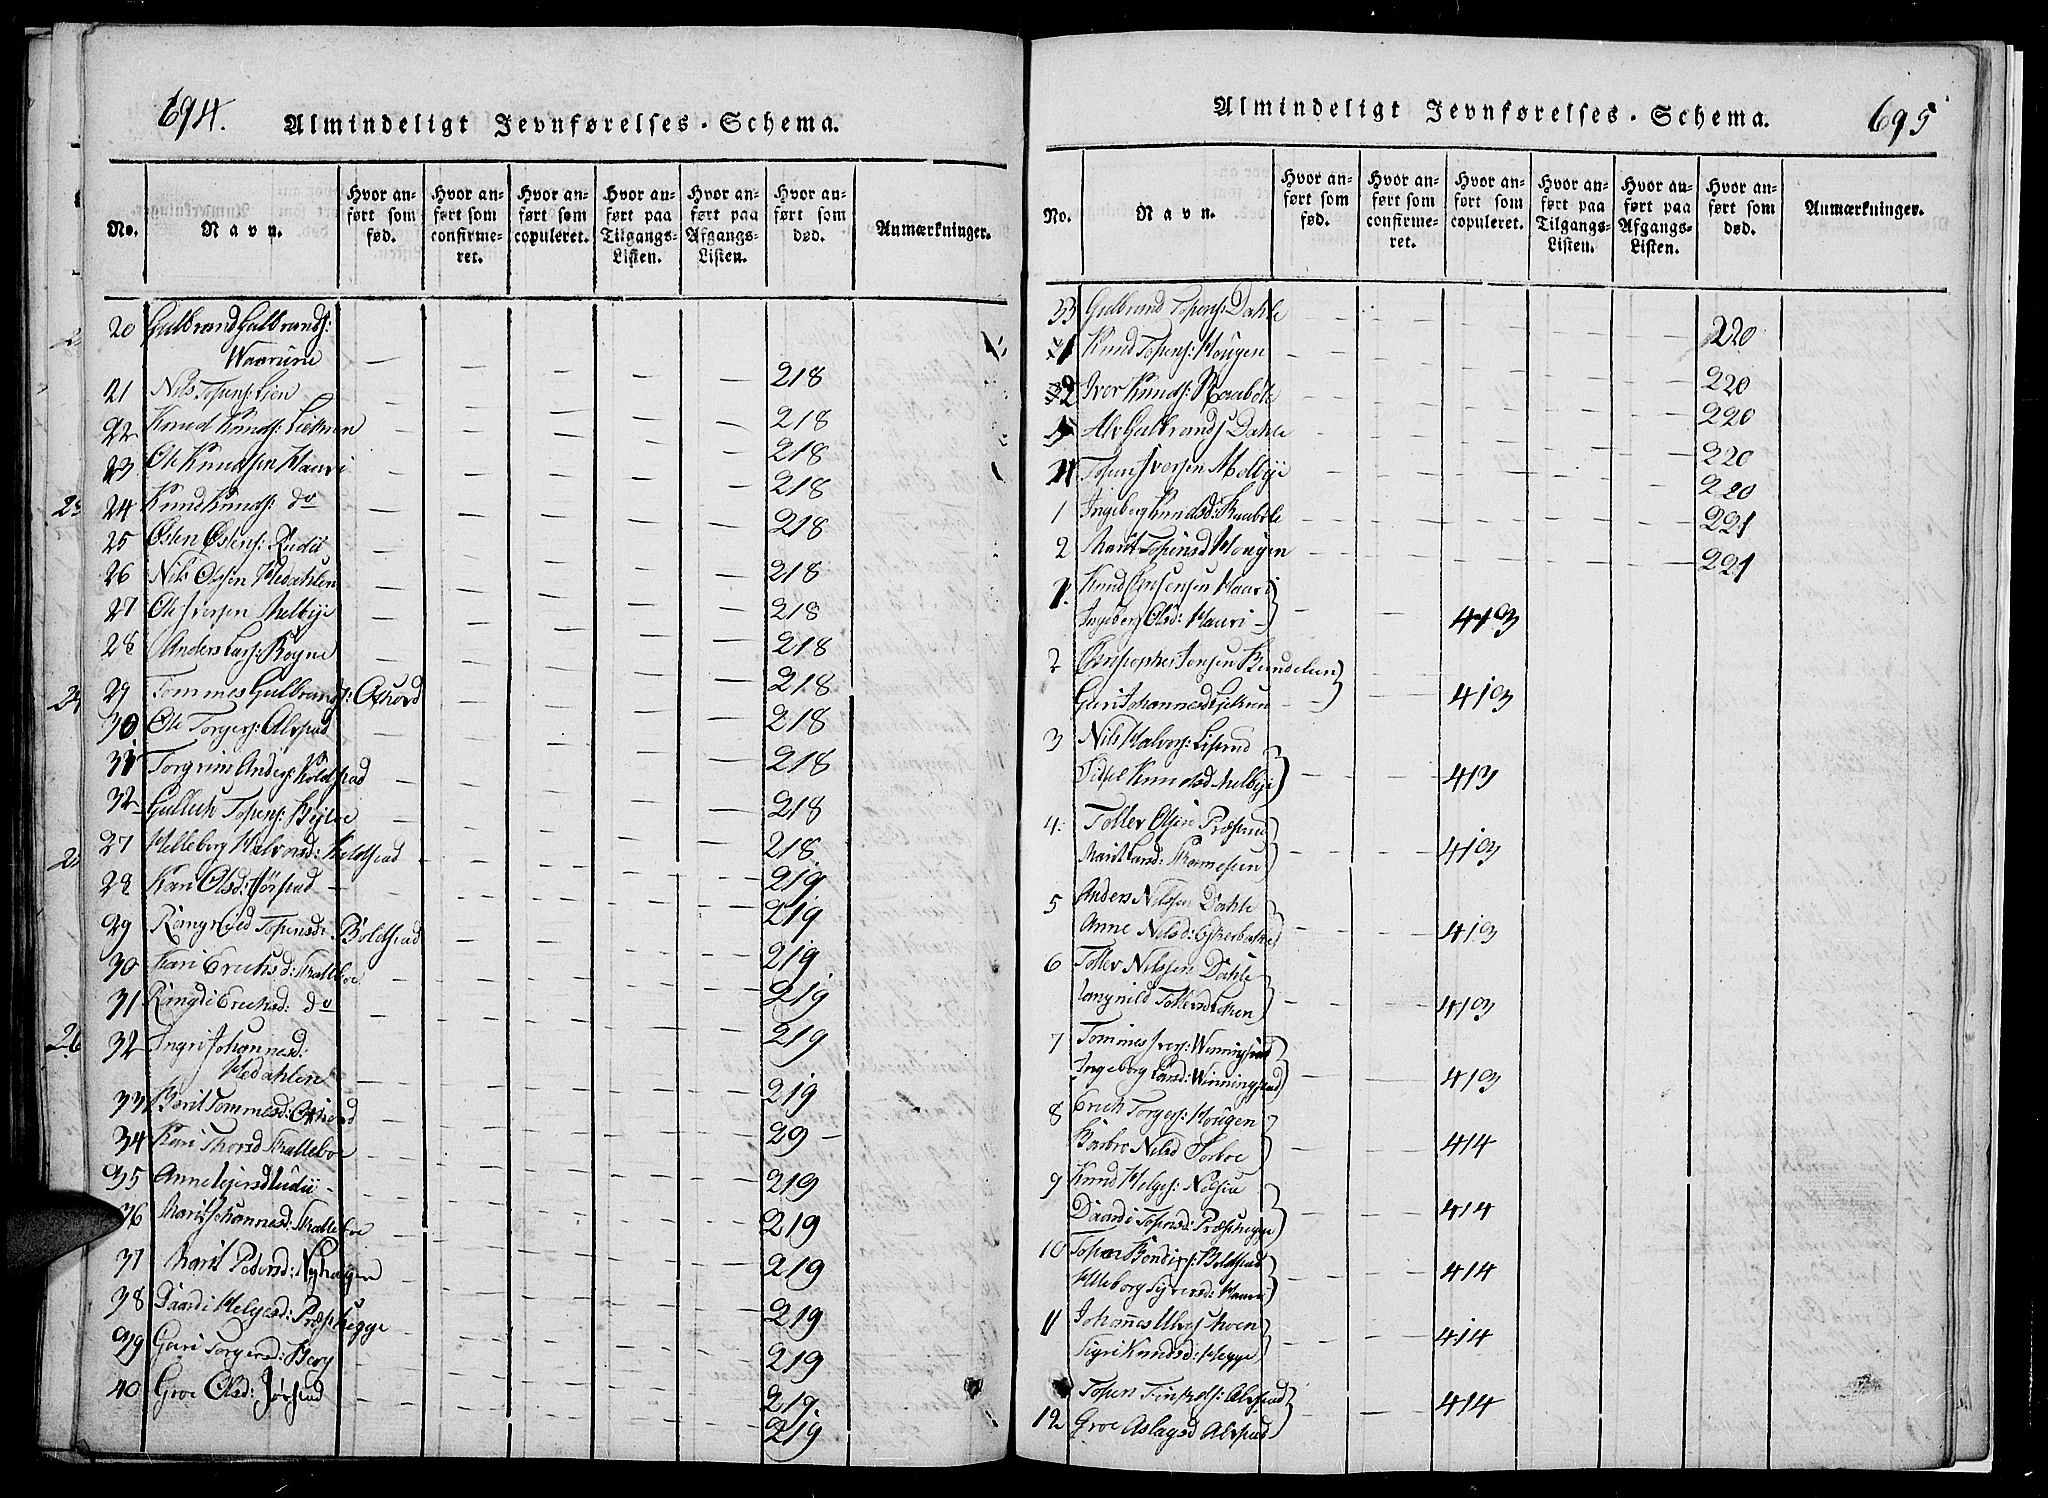 694.
Almindeligt Jevnførelses-Schema.
No.
Navn.
Hvor anført som fød.
Hvor anført som confirmeret.
Hvor anført som copuleret.
Hvor anført paa Tilgangs-Listen.
Hvor anført paa Afgangs-Listen.
Hvor anført som død.
Anmærkninger.
20 Gulbrand Gulbrands:
218
21 Nils Tostens: Lien 218
22 Knud Knuds: 218
23 Ole Knudsen Hauri 218
24 Knud Knuds: do 218
25 Østen Østens: Rudii 218
26 Nils Olsen Hedahlen 218
27 Ole Iversen Melbye 218
28 Anders Lars: Rogne 218
29 Tommes Gulbrands: 218
30 Ole Torgers: Alvstad 218
31 Torgrim Anders: Boldstad 218
32 Gullich Tostens: 218
27 Helleborg Halvorsd: Boldstad 219
28 Kari Olsd: Jørstad 219
29 Rangnild Tostensd: Boldstad 219
30 Kari Erichsd: Skatteboe 219
31 Ringdi Erichsd: do 219
32 Ingri Johannesd:
Hedahlen 219
33 Berit Tommesd: 29
34 Kari Thorsd Skatteboe 219
35 Anne 219
36 Marit Johannesd: Skatteboe 219
37 Marit Pedersd: Nyhagen 219
38 Daardi Helgesd: Præsthegge 219
39 Guri Torgersd: Berg 219
40 Groe Olsd: Jørstad 219
695
Almindeligt Jevnførelses-Schema.
No.
Navn.
Hvor anført som fød.
Hvor anført som confirmeret.
Hvor anført som copuleret.
Hvor anført paa Tilgangs-Listen.
Hvor anført paa Afgangs-Listen.
Hvor anført som død.
Anmærkninger.
33 Gulbrand Tostens: Dahle 220
Knud Tostens: Hougen 220
Iver Knuds: Raabøle 220
Gulbrands Dahle 220
Tosten Iversen Melbye 220
1 Ingeberg Knudsd: Raabøle 221
2 Marit Tostensd Hougen 221
1. Knud Hauri
Ingeberg Olsd: Hauri 413
2 Christopher Jonsen
Guri Johannesd 413
3 Nils Halvors:
Sidsel Knudsd Melbye 413
4: Toller Olsen Præstrud
Marit 413
5 Anders Nilssen Dahle
Anne Nilsd: 413
6 Toller Nilssen Dahle
Rangnild Tollersd 413
7 Tommes Ivers: Winningstad
Ingeborg Larsd: Winningstad 413
8 Erich Torgers: Hougen
Barbro Nilsd 414
9 Knud Helges:
Daardi Tostensd: Præsthegge 414
10 Tosten Bendix: Boldstad
Helleborg Sjversd: Hauri 414
11 Johannes
Sigri Knudsd: Hegge 414
Tosten Alvstad 414
12 Groe Aslagsd Alvstad